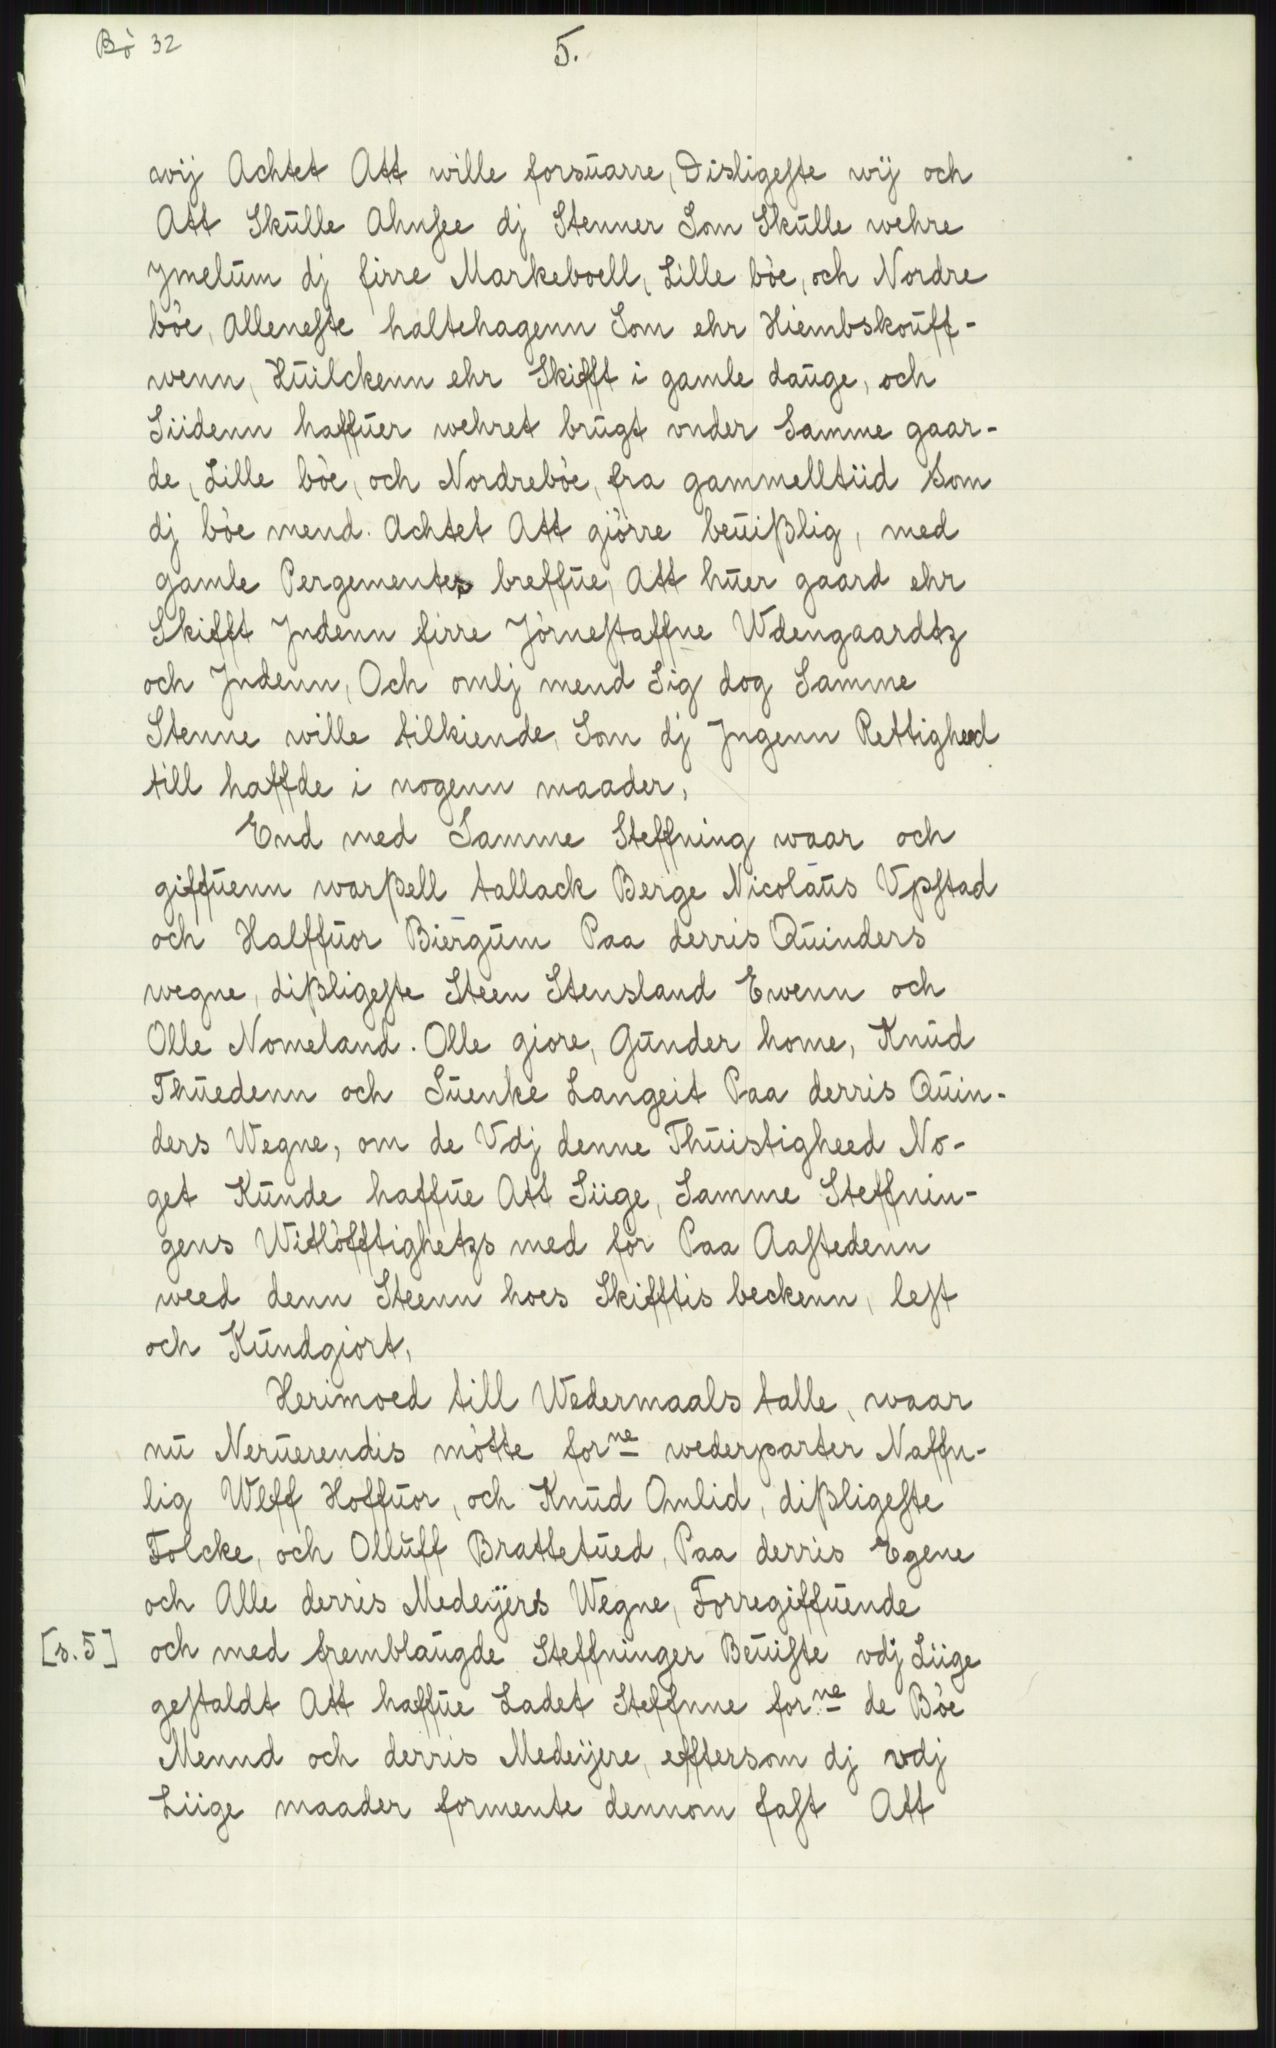 Bò 32
5.
wij Achtet Att wille forsuarre, Disligeste wij och
Att Skulle Ahnsee dj Stenner Som Skulle wehre
ymelum dj firre Markeboell, Lille bòe, och Nordre
bòe, Alleneste haltehagenn Som ehr Hiembskouff-
wenn, Huilckenn ehr Skifft i gamle dauge, och
Siidenn haffuer wehret brugt vnder Samme gaar-
de, Lille bòe, och Nordrebòe, fra gammelltiid Som
dj bòe mend. Achtet Att giòrre beuißlig, med
gamle Pergementes breffue, Att huer gaard ehr
Skifft Jndenn firre Jòrnestaffne Wdengaardtz
och Jndenn, Och omlj mend Sig dog Samme
Stenne wille tilkiende, Som dj Jngenn Rettigheed
till haffde i nogenn maader,
End med Samme Steffning waar och
giffuenn warßell tallack Berge Nicolaus Vpstad
och Halffuor Biergum Paa derris Quinders
wegne, dißligeste Steen Stensland Ewenn och
Olle Nomeland. Olle giore, Gunder home, Knud
Thuedenn och Suenke Langeit Paa derris Quin-
ders Wegne, om de Vdj denne Thuistigheed No-
get Kunde haffue Att Siige, Samme Steffnin-
gens Witlòfftighetzs med for Paa Aastedenn
weed denn Steenn hoes Skifftis beckenn, lest
och Kundgiort,
Herimoed till Wedermaals talle, waar
nu Neruerendis mòtte forne wederparter Naffn-
lig Wlff Hoffuor, och Knud Omlid, dißligeste
Folcke, och Olluff Brattetued, Paa derris Egene
och Alle derris Medeÿers Wegne, Forregiffuende
[s. 5] och med fremblaugde Steffninger Beuiste vdj Liige
gestaldt Att haffue Ladet Steffnne forne de Bòe
Mennd och derris Medeÿere, efftersom dj vdj
Liige maader formente dennom fast Att